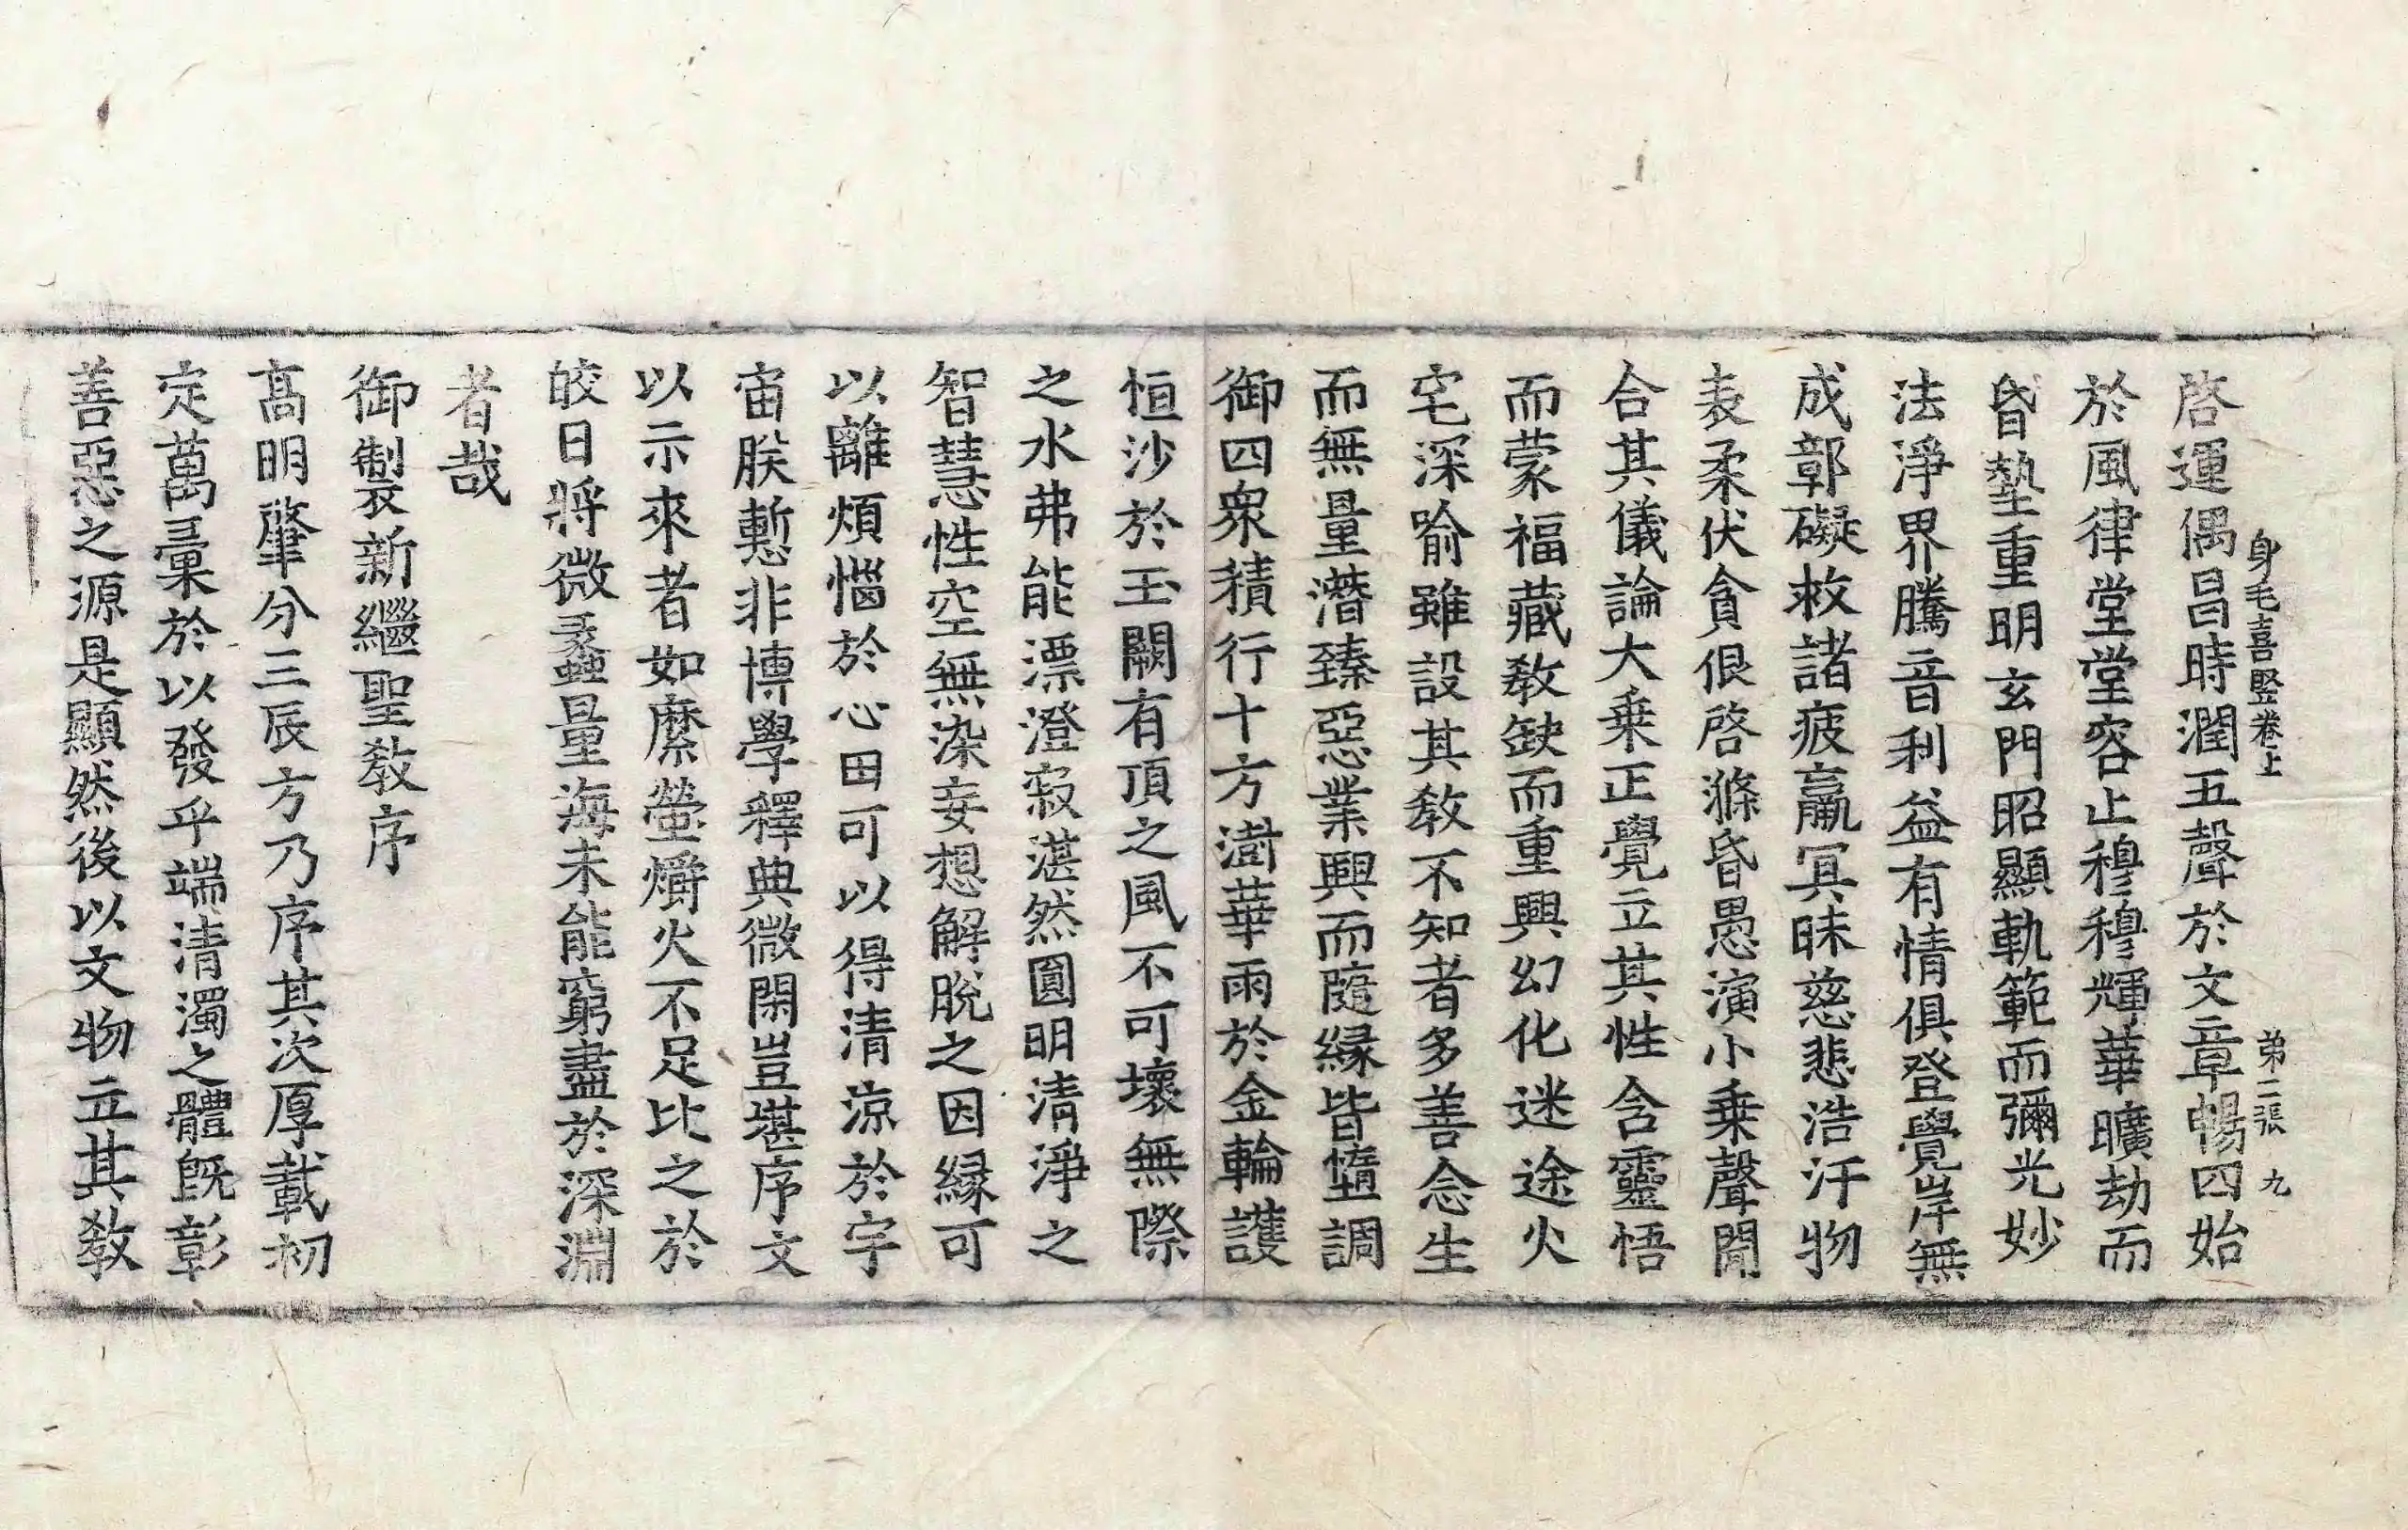 身毛喜竪卷上 第二張 九
啓運偶昌時潤五聲於文章暢四始
於風律堂堂容止穆穆輝華曠劫而
昏墊重明玄門昭顯軌範而彌光妙
法淨界騰音利益有情俱登覺岸無
成鄣礙救諸疲羸冥昧慈悲浩汗物
表柔伏貪佷啓滌昏愚演小乗聲聞
合其儀論大乗正覺立其性含靈悟
而蒙福藏教缺而重興幻化迷途火
宅深喻雖設其教不知者多善念生
而無量潛臻惡業興而隨緣皆墮調
御四衆積行十方澍華雨於金輪護
恒沙於玉闕有頂之風不可壞無際
之水弗能漂澄寂湛然圓明清淨之
智慧性空無染妄想解脫之因緣可
以離煩惱於心田可以得清涼於宇
宙朕慙非博學釋典微閑豈堪序文
以示來者如縻螢爝火不足比之於
皎日將微蠡量海未能窮盡於深淵
者哉
御製新繼聖教序
髙明肇分三辰方乃序其次厚載初
定萬彙於以發乎端清濁之體旣彰
善惡之源是顯然後以文物立其教